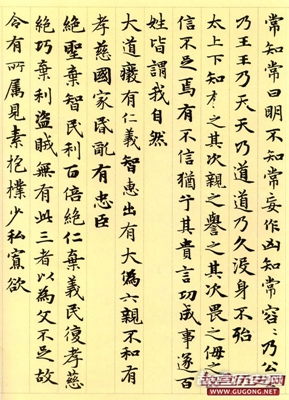 常知常曰明不知常妄作凶知常容〻乃公〻
乃王王乃天天乃道道乃久没身不殆
太上下知有之其次親之譽之其次畏之侮之
信不足焉有不信猶乎其貴言功成事遂百
姓皆謂我自然
大道癈有仁義智惠出有大偽六親不和有
孝慈國家昏亂有忠臣
絕聖棄智民利百倍絕仁棄義民復孝慈
絕巧棄利盜賊無有此三者以為文不足故
令有所属見素抱樸少私寡欲
故宫历史网
www.gugong.net